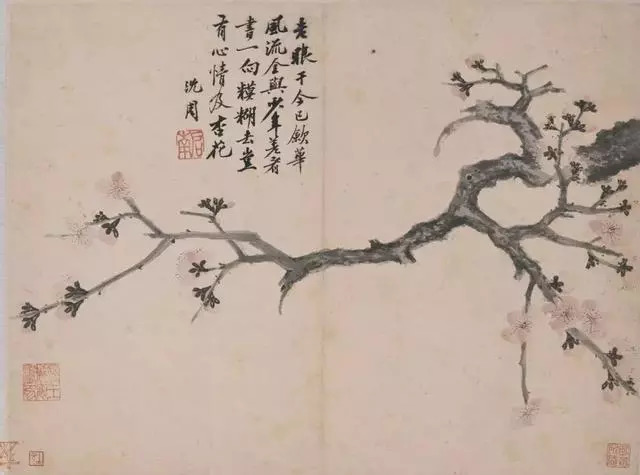 老眼于今已歛華
風流全與少年差看
書一向糢糊去豈
有心情及杏花
沈周
啟南